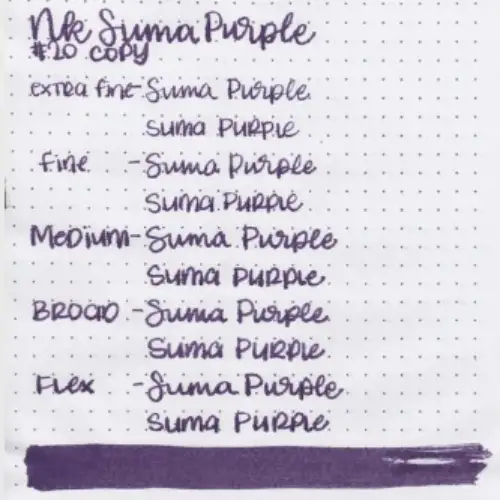 NK Suma Purple
#20 COPY
extra fine - Suma Purple
Suma Purple
fine - Suma Purple
Suma Purple
Medium - Suma Purple
Suma Purple
Broad - Suma Purple
Suma Purple
Flex - Suma Purple
Suma Purple